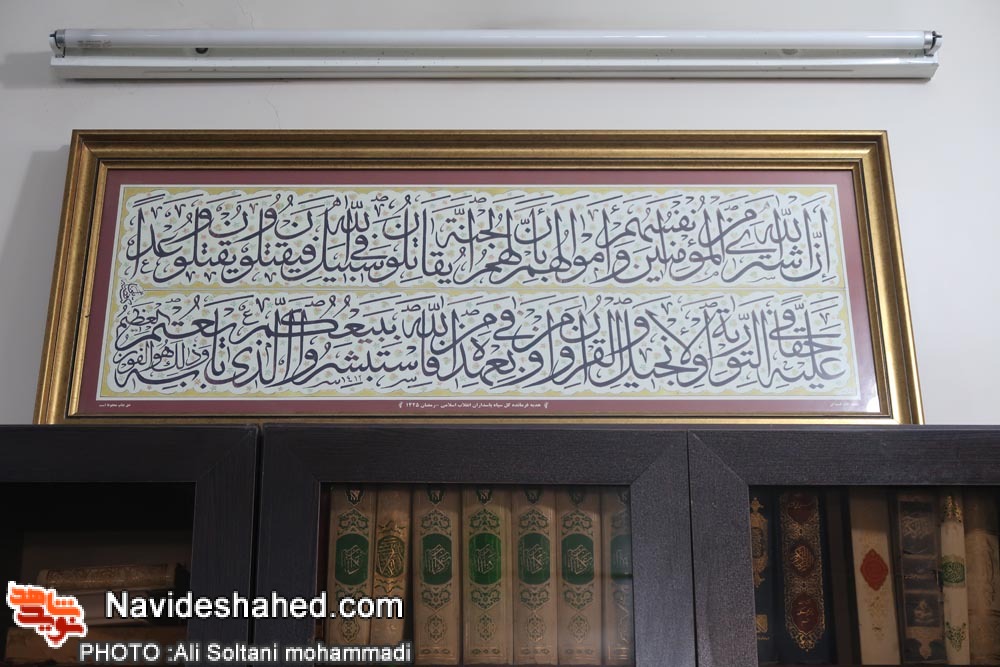 إن الله اشترى من المؤمنين أنفسهم وأموالهم بأن لهم الجنة يقاتلون في سبيل الله فيقتلون ويقتلون وعدا
عليه حقا في التوراة والإنجيل والقرآن ومن أوفى بعهده من الله فاستبشروا ببيعكم الذي بايعتم به وذلك هو الفوز العظيم
۱۴۱۲
هدیه فرمانده کل سپاه پاسداران انقلاب اسلامی - رمضان ۱۴۲۵
حق چاپ محفوظ است
نوید شاهد
Navideshahed.com
PHOTO :Ali Soltani mohammadi